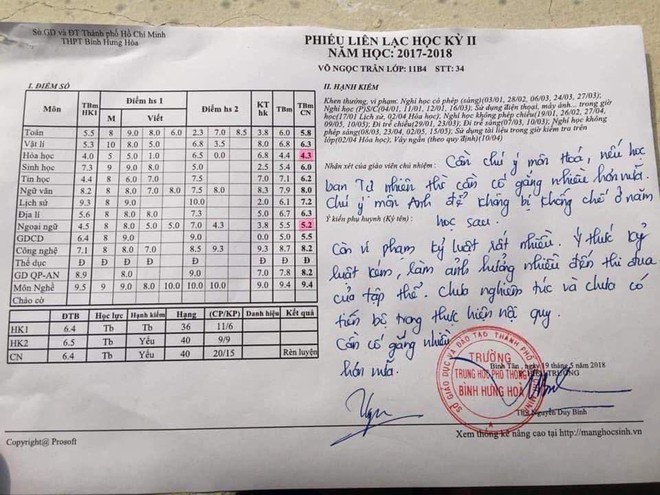 Sở GD và ĐT Thành phố Hồ Chí Minh
THPT Bình Hưng Hòa
PHIẾU LIÊN LẠC HỌC KỲ II
NĂM HỌC: 2017-2018
VÕ NGỌC TRÂN LỚP: 11B4 STT: 34
I. ĐIỂM SỐ
Môn TBm HK1 Điểm hs 1 M Viết Điểm hs 2 KT hk TBm TBm CN
Toán 5.5 8 9.0 8.0 6.0 2.3 7.0 8.5 3.8 6.0 5.8
Vật lí 5.3 10 8.0 5.0 6.8 3.5 8.0 6.8 6.3
Hóa học 4.0 5 5.0 1.0 6.5 0.0 6.8 4.4 4.3
Sinh học 7.3 9 9.0 8.0 5.0 2.5 5.4 6.0
Tin học 4.4 8 7.0 7.5 7.5 7.1 6.2
Ngữ văn 8.2 8 8.0 7.0 8.0 7.5 8.3 7.9 8.0
Lịch sử 9.3 8 9.0 10.0 2.0 6.1 7.2
Địa lí 5.6 8 8.0 8.0 7.3 5.0 6.7 6.3
Ngoại ngữ 4.5 8 8.0 5.0 5.0 7.0 4.3 3.8 5.5 5.2
GDCD 6.4 9.0 9.0 0.0 5.0 5.5
Công nghệ 7.1 8 8.0 7.0 8.5 9.3 9.3 8.7 8.2
Thể dục Đ Đ Đ Đ Đ Đ
GD QP-AN 8.9 8.0 9.0 7.0 7.8 8.2
Môn Nghề 9.5 9 9.0 8.0 10.0 10.0 10.0 9.0 9.4 9.4
Chào cờ
ĐTB Học lực Hạnh kiểm Hạng (CP/KP) Danh hiệu Kết quả
HK1 6.4 Tb Tb 36 11/6
HK2 6.5 Tb Yếu 40 9/9
CN 6.4 Tb Yếu 40 20/15 Rèn luyện
Copyright@ Prosoft
II. HẠNH KIỂM
Khen thưởng, vi phạm: Nghỉ học có phép (sáng)(03/01, 28/02, 06/03, 24/03, 27/03);
Nghỉ học (P)S/C(04/01, 11/01, 12/01, 16/03); Sử dụng điện thoại, máy ảnh... trong giờ
học(17/01 Lịch sử, 02/04 Hóa học); Nghỉ học không phép chiều(19/01, 26/02, 27/04,
09/05, 10/05); Đi trễ chiều(29/01, 23/03); Đi trễ sáng(07/03, 10/03); Nghỉ học không
phép sáng(08/03, 23/04, 02/05, 15/05); Sử dụng tài liệu trong giờ kiểm tra trên
lớp(02/04 Hóa học); Váy ngắn (theo quy định)(10/04)
Nhận xét của giáo viên chủ nhiệm: Cần chú ý môn Hoá, nếu học
ban Tự nhiên thì cần cố gắng nhiều hơn nữa.
Chú ý môn Anh để không bị khống chế ở năm
học sau.
Ý kiến phụ huynh (Ký tên):
Còn vi phạm kỷ luật rất nhiều. Ý thức kỷ
luật kém, làm ảnh hưởng nhiều đến thi đua
của tập thể. Chưa nghiêm túc và chưa có
tiến bộ trong thực hiện nội quy.
Cần cố gắng nhiều
hơn nữa.
Bình Tân, ngày 19 tháng 5 năm 2018
HIỆU TRƯỞNG
SỞ GIÁO DỤC VÀ ĐÀO TẠO THÀNH PHỐ
TRƯỜNG
TRUNG HỌC PHỔ THÔNG
BÌNH HƯNG HOÀ
ThS Nguyễn Duy Bình
Xem thống kê nâng cao tại http://manghocsinh.vn